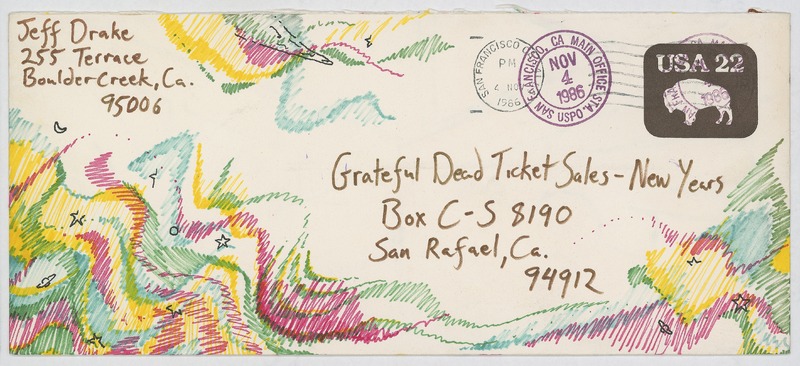 Jeff Drake
255 Terrace
Boulder Creek, Ca.
95006
SAN FRANCISCO
PM
NOV
1986
SAN FRANCISCO, CA MAIN OFFICE STA.
NOV
4
1986
USPO
USA 22
1986
Grateful Dead Ticket Sales - New Years
Box C-S 8190
San Rafael, Ca.
94912